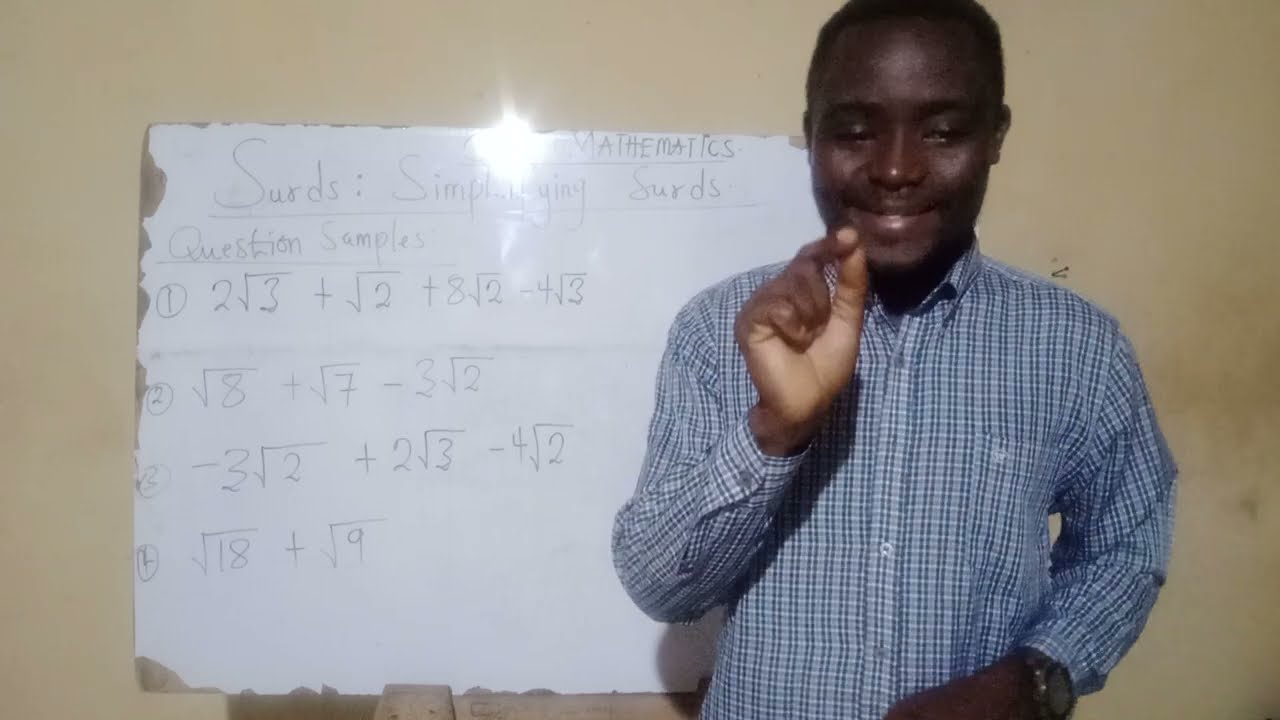 MATHEMATICS.
Surds: Simplifying Surds.
Question Samples
① 2√3 + √2 + 8√2 - 4√3
② √8 + √7 - 3√2
③ -3√2 + 2√3 - 4√2
④ √18 + √9